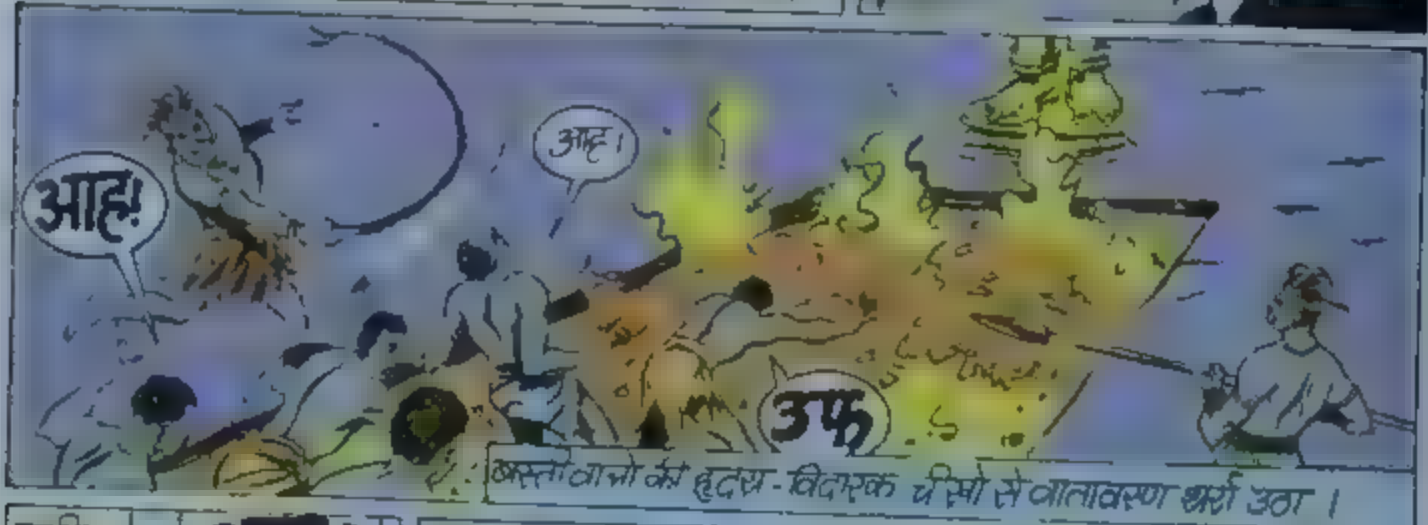 आह!
आह।
उफ
बस्ती वालो की हृदय-विदारक चीखो से वातावरण थर्रा उठा ।